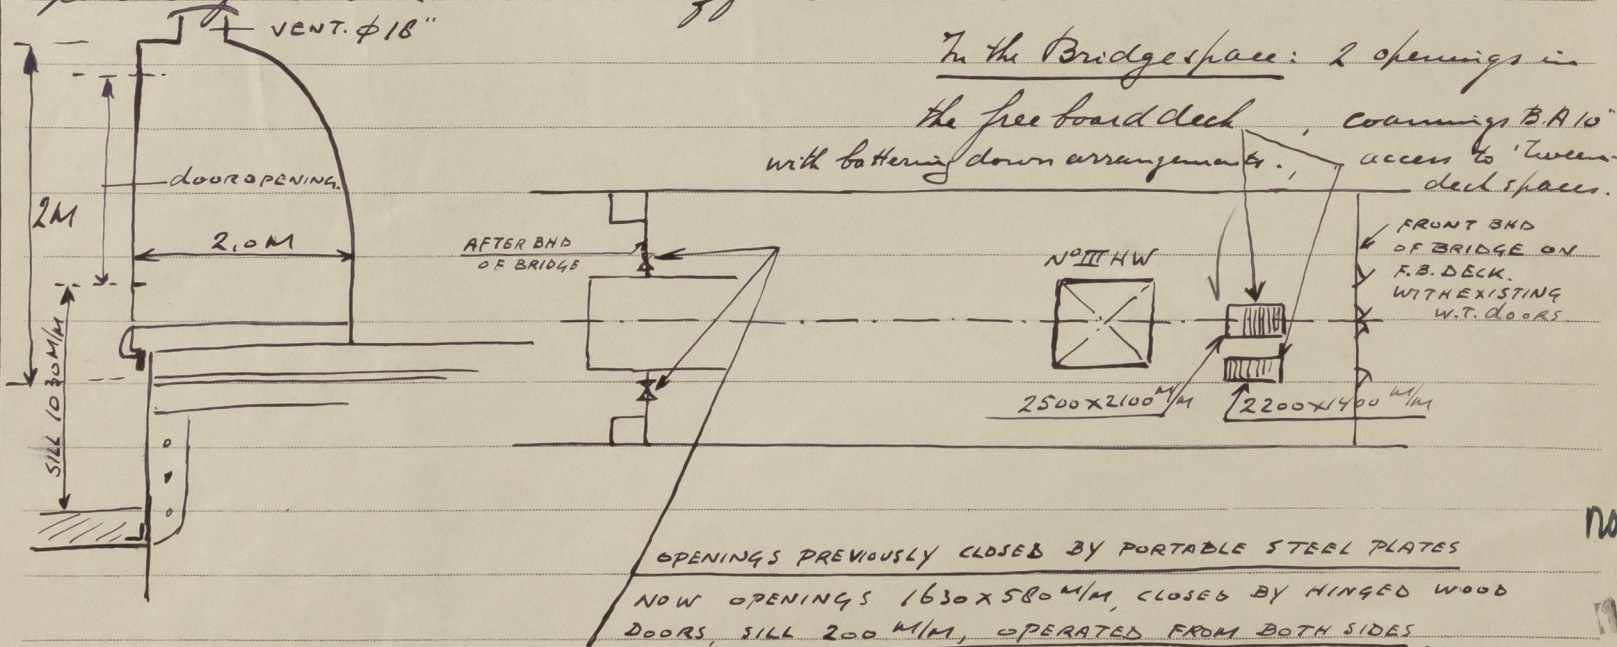 VENT. φ 18"
In the Bridgespace: 2 openings in
the freeboard deck, coamings B.A 10"
with battening down arrangements., access to 'tween-
deck spaces.
DOOROPENING.
2M
2,0 M
SILL 1030 M/M
AFTER BHD
OF BRIDGE
No III HW
FRONT BHD
OF BRIDGE ON
F.B. DECK.
WITH EXISTING
W.T. DOORS.
2500 x 2100 M/M
2200 x 1400 M/M
no
OPENINGS PREVIOUSLY CLOSED BY PORTABLE STEEL PLATES
NOW OPENINGS 1630 x 580 M/M, CLOSED BY HINGED WOOD
DOORS, SILL 200 M/M, OPERATED FROM BOTH SIDES